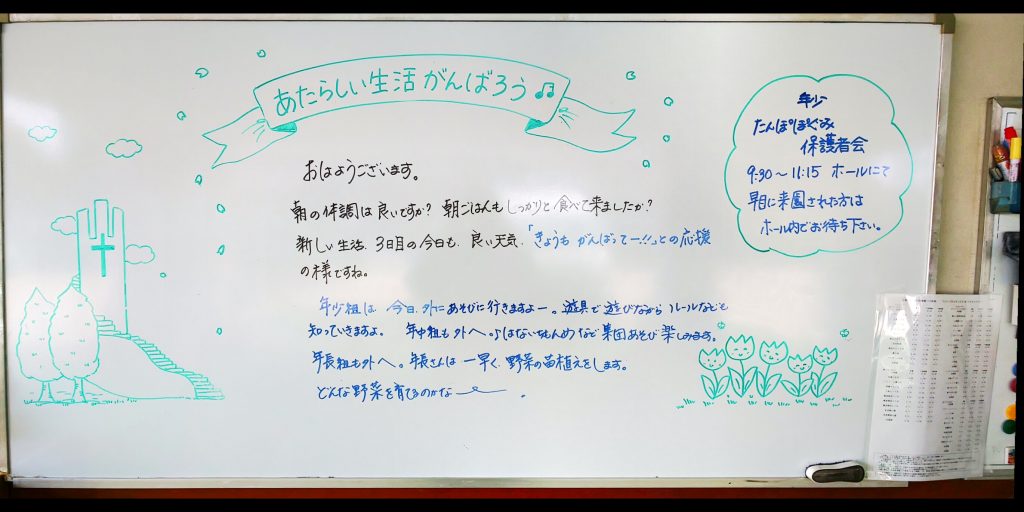 あたらしい生活がんばろう♫
おはようございます。
朝の体調は良いですか? 朝ごはんもしっかりと食べて来ましたか?
新しい生活、3日目の今日も、良い天気、「きょうも がんばってー!!」との応援
の様ですね。
年少組は 今日、外にあそびに行きますよー。遊具で遊びながらルールなども
知っていきますよ。 年中組も外へ。♪はないちもんめなど集団あそび楽しみます。
年長組も外へ。年長さんは一早く、野菜の苗植えをします。
どんな野菜を育てるのかなー。
年少
たんぽぽぐみ
保護者会
9:30～11:15 ホールにて
早目に来園された方は
ホール内でお待ち下さい。